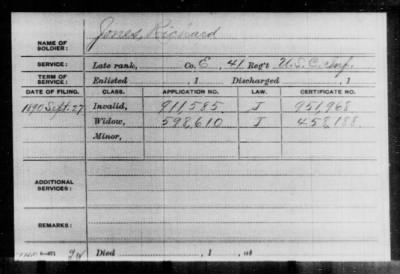 NAME OF SOLDIER: Jones, Richard
SERVICE: Late rank, Co. E, 41 Reg't U.S.C. Inf.
TERM OF SERVICE: Enlisted , 1 Discharged , 1
DATE OF FILING. CLASS. APPLICATION NO. LAW. CERTIFICATE NO.
1890 Sept. 27 Invalid, 911,585 J 951,968
Widow, 598,610 J 458,188
Minor,
ADDITIONAL SERVICES:
REMARKS:
Died , 1 , at